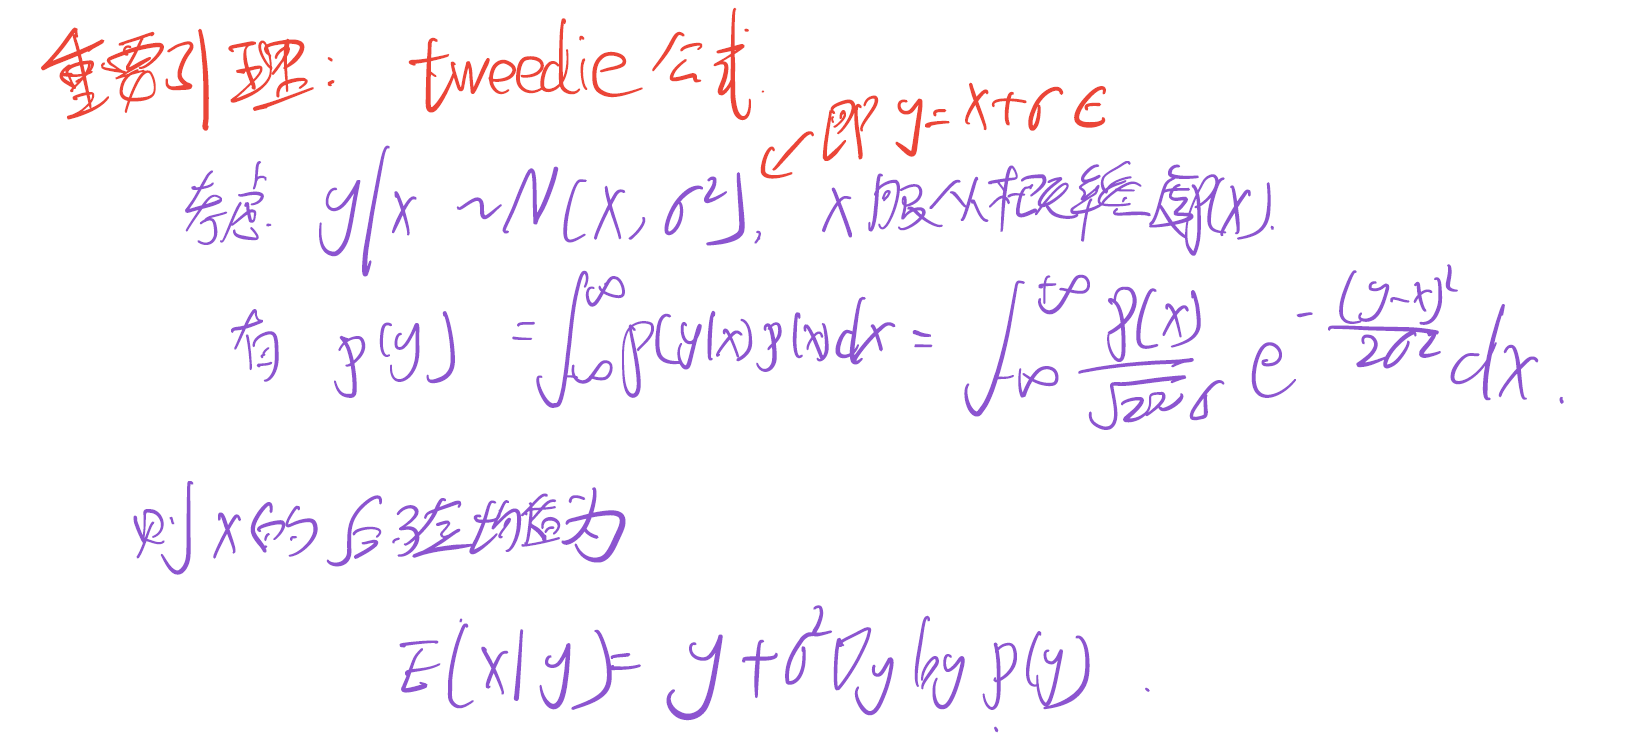 重要引理: tweedie 公式.
即 y=x+σϵ
考虑 y|x ~N(x,σ²), x服从概率密度p(x).
有 p(y) = ∫_{-∞}^{∞} p(y|x)p(x)dx = ∫_{-∞}^{+∞} \frac{p(x)}{\sqrt{2π}σ} e^{-\frac{(y-x)²}{2σ²}} dx.
则 x的后验均值为
E(x|y)= y+σ²∇y log p(y).